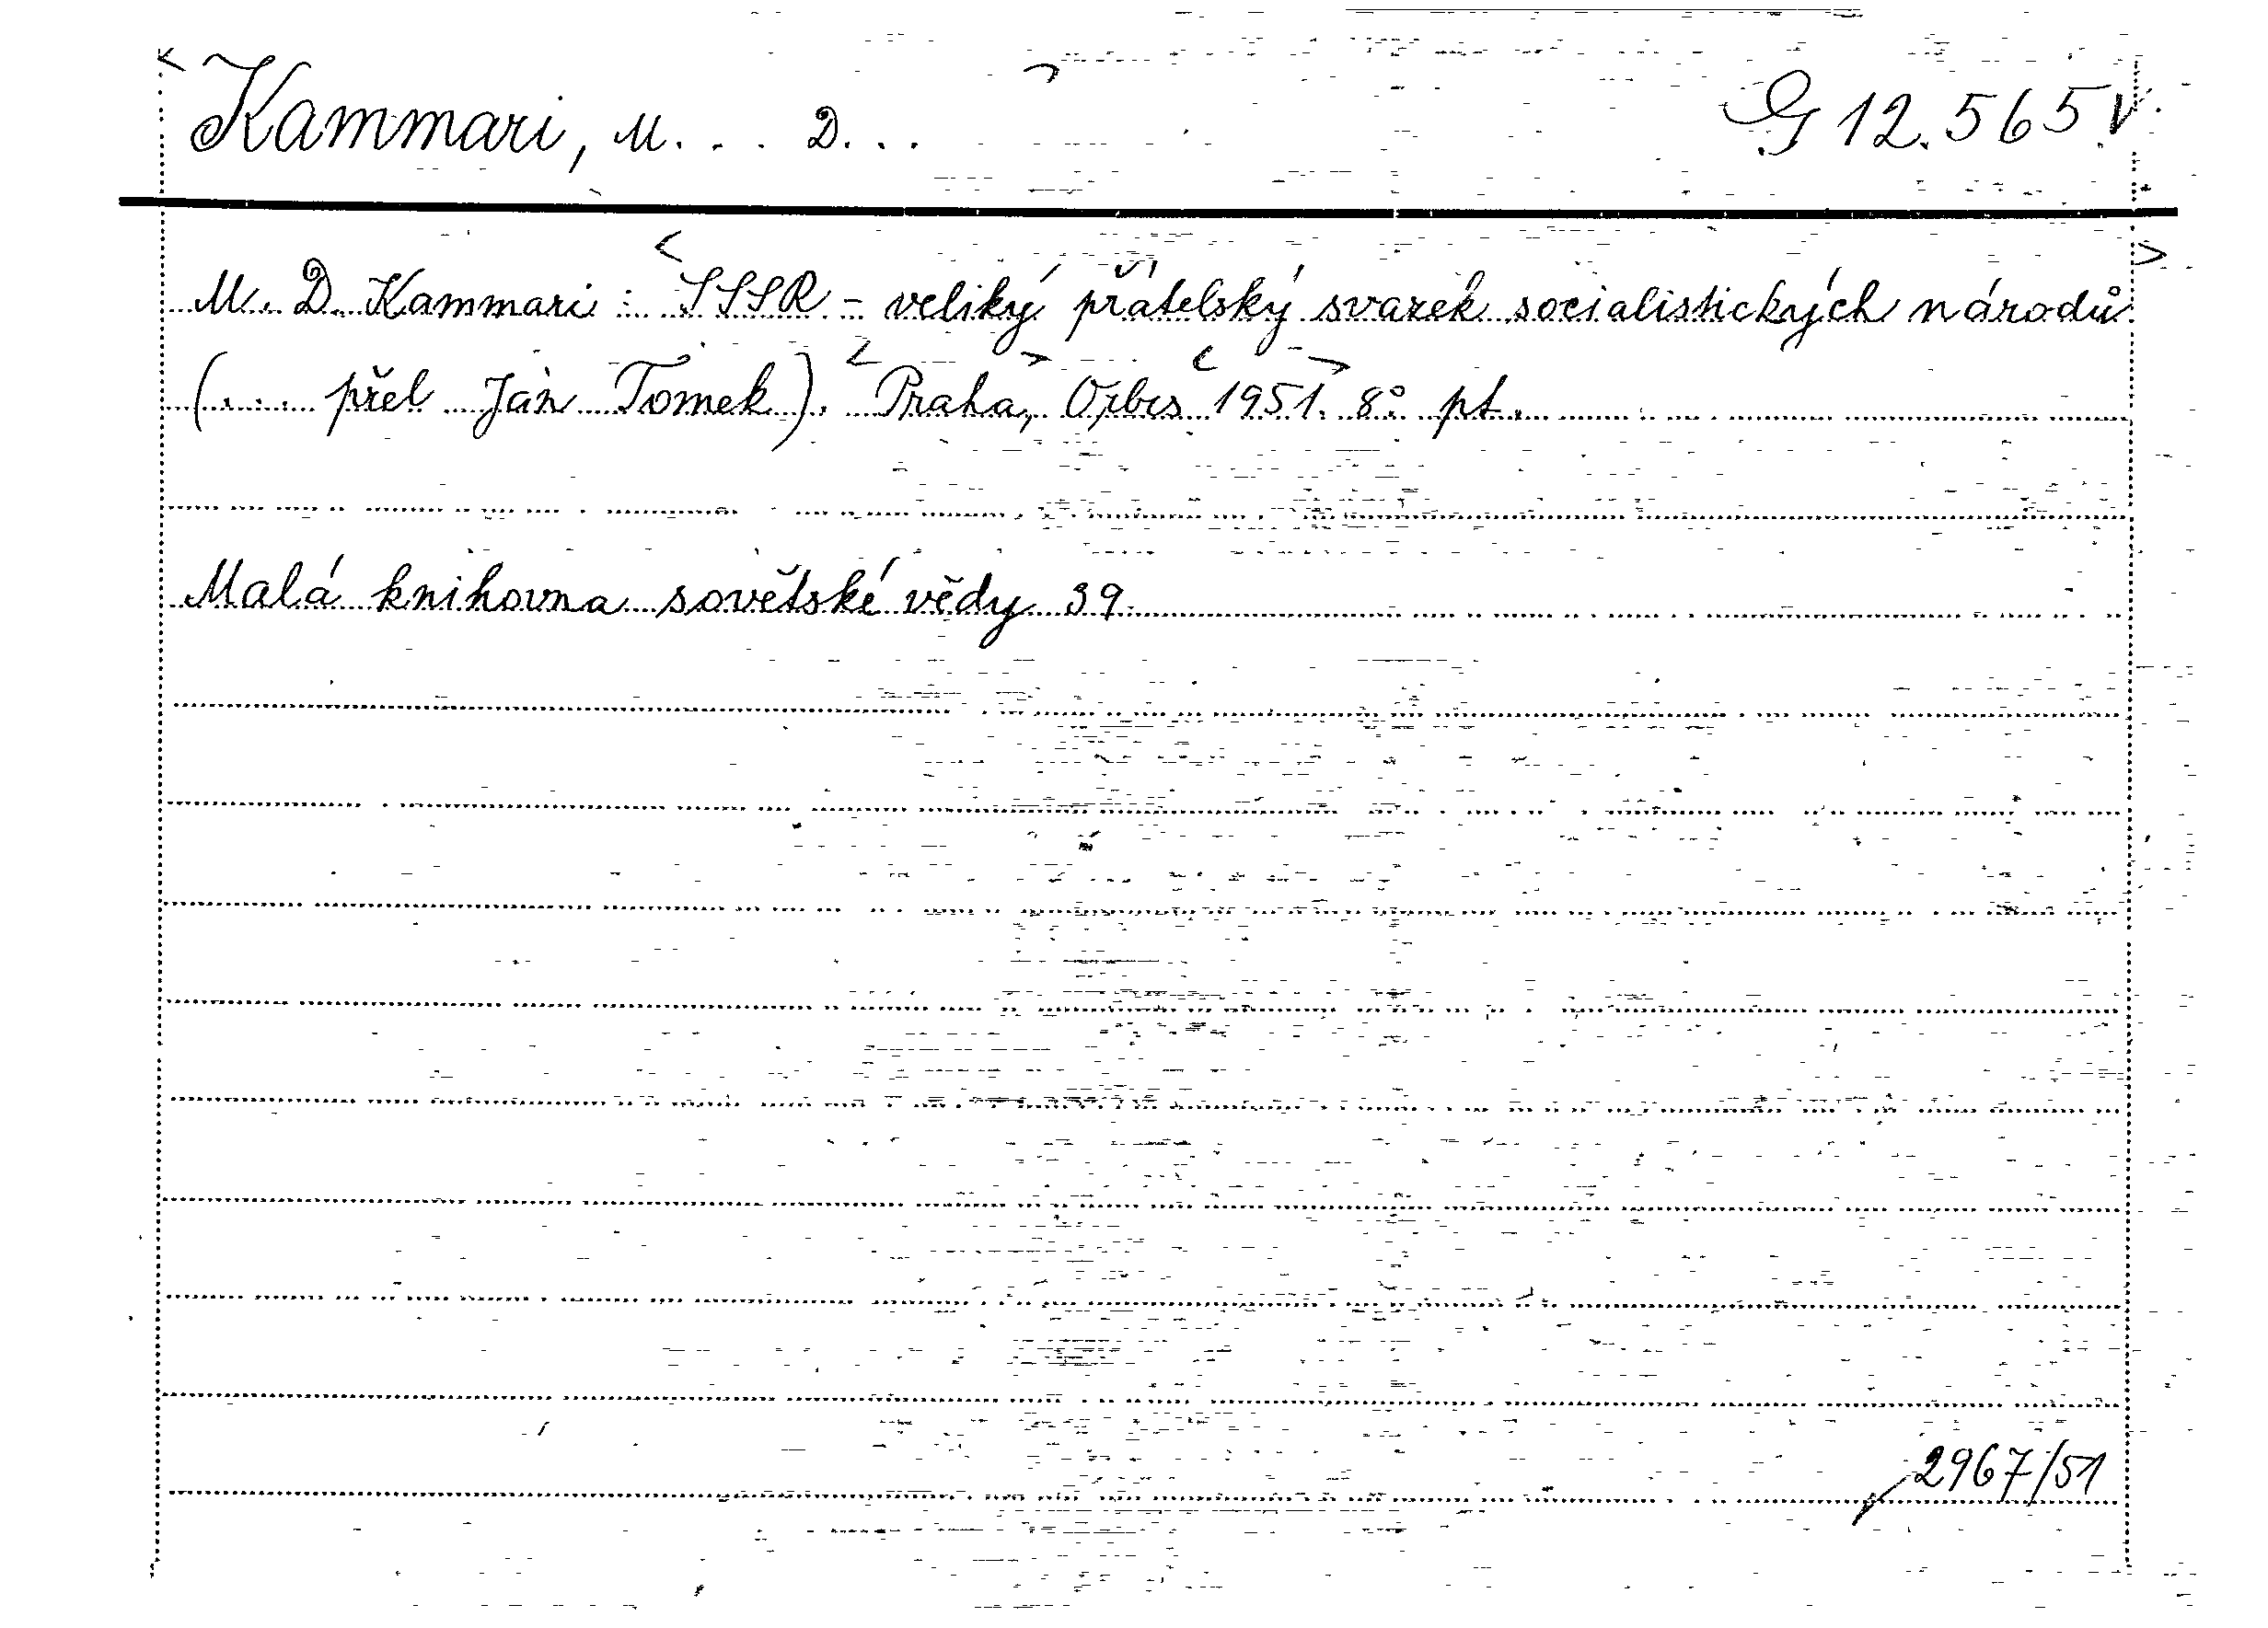 Kammari, M... D... G 12.565 V
M. D. Kammari: SSSR - veliký přátelský svazek socialistických národů
(... přel Jan Tomek). Praha, Orbis 1951. 8° pt.
Malá knihovna sovětské vědy 39
2967/51